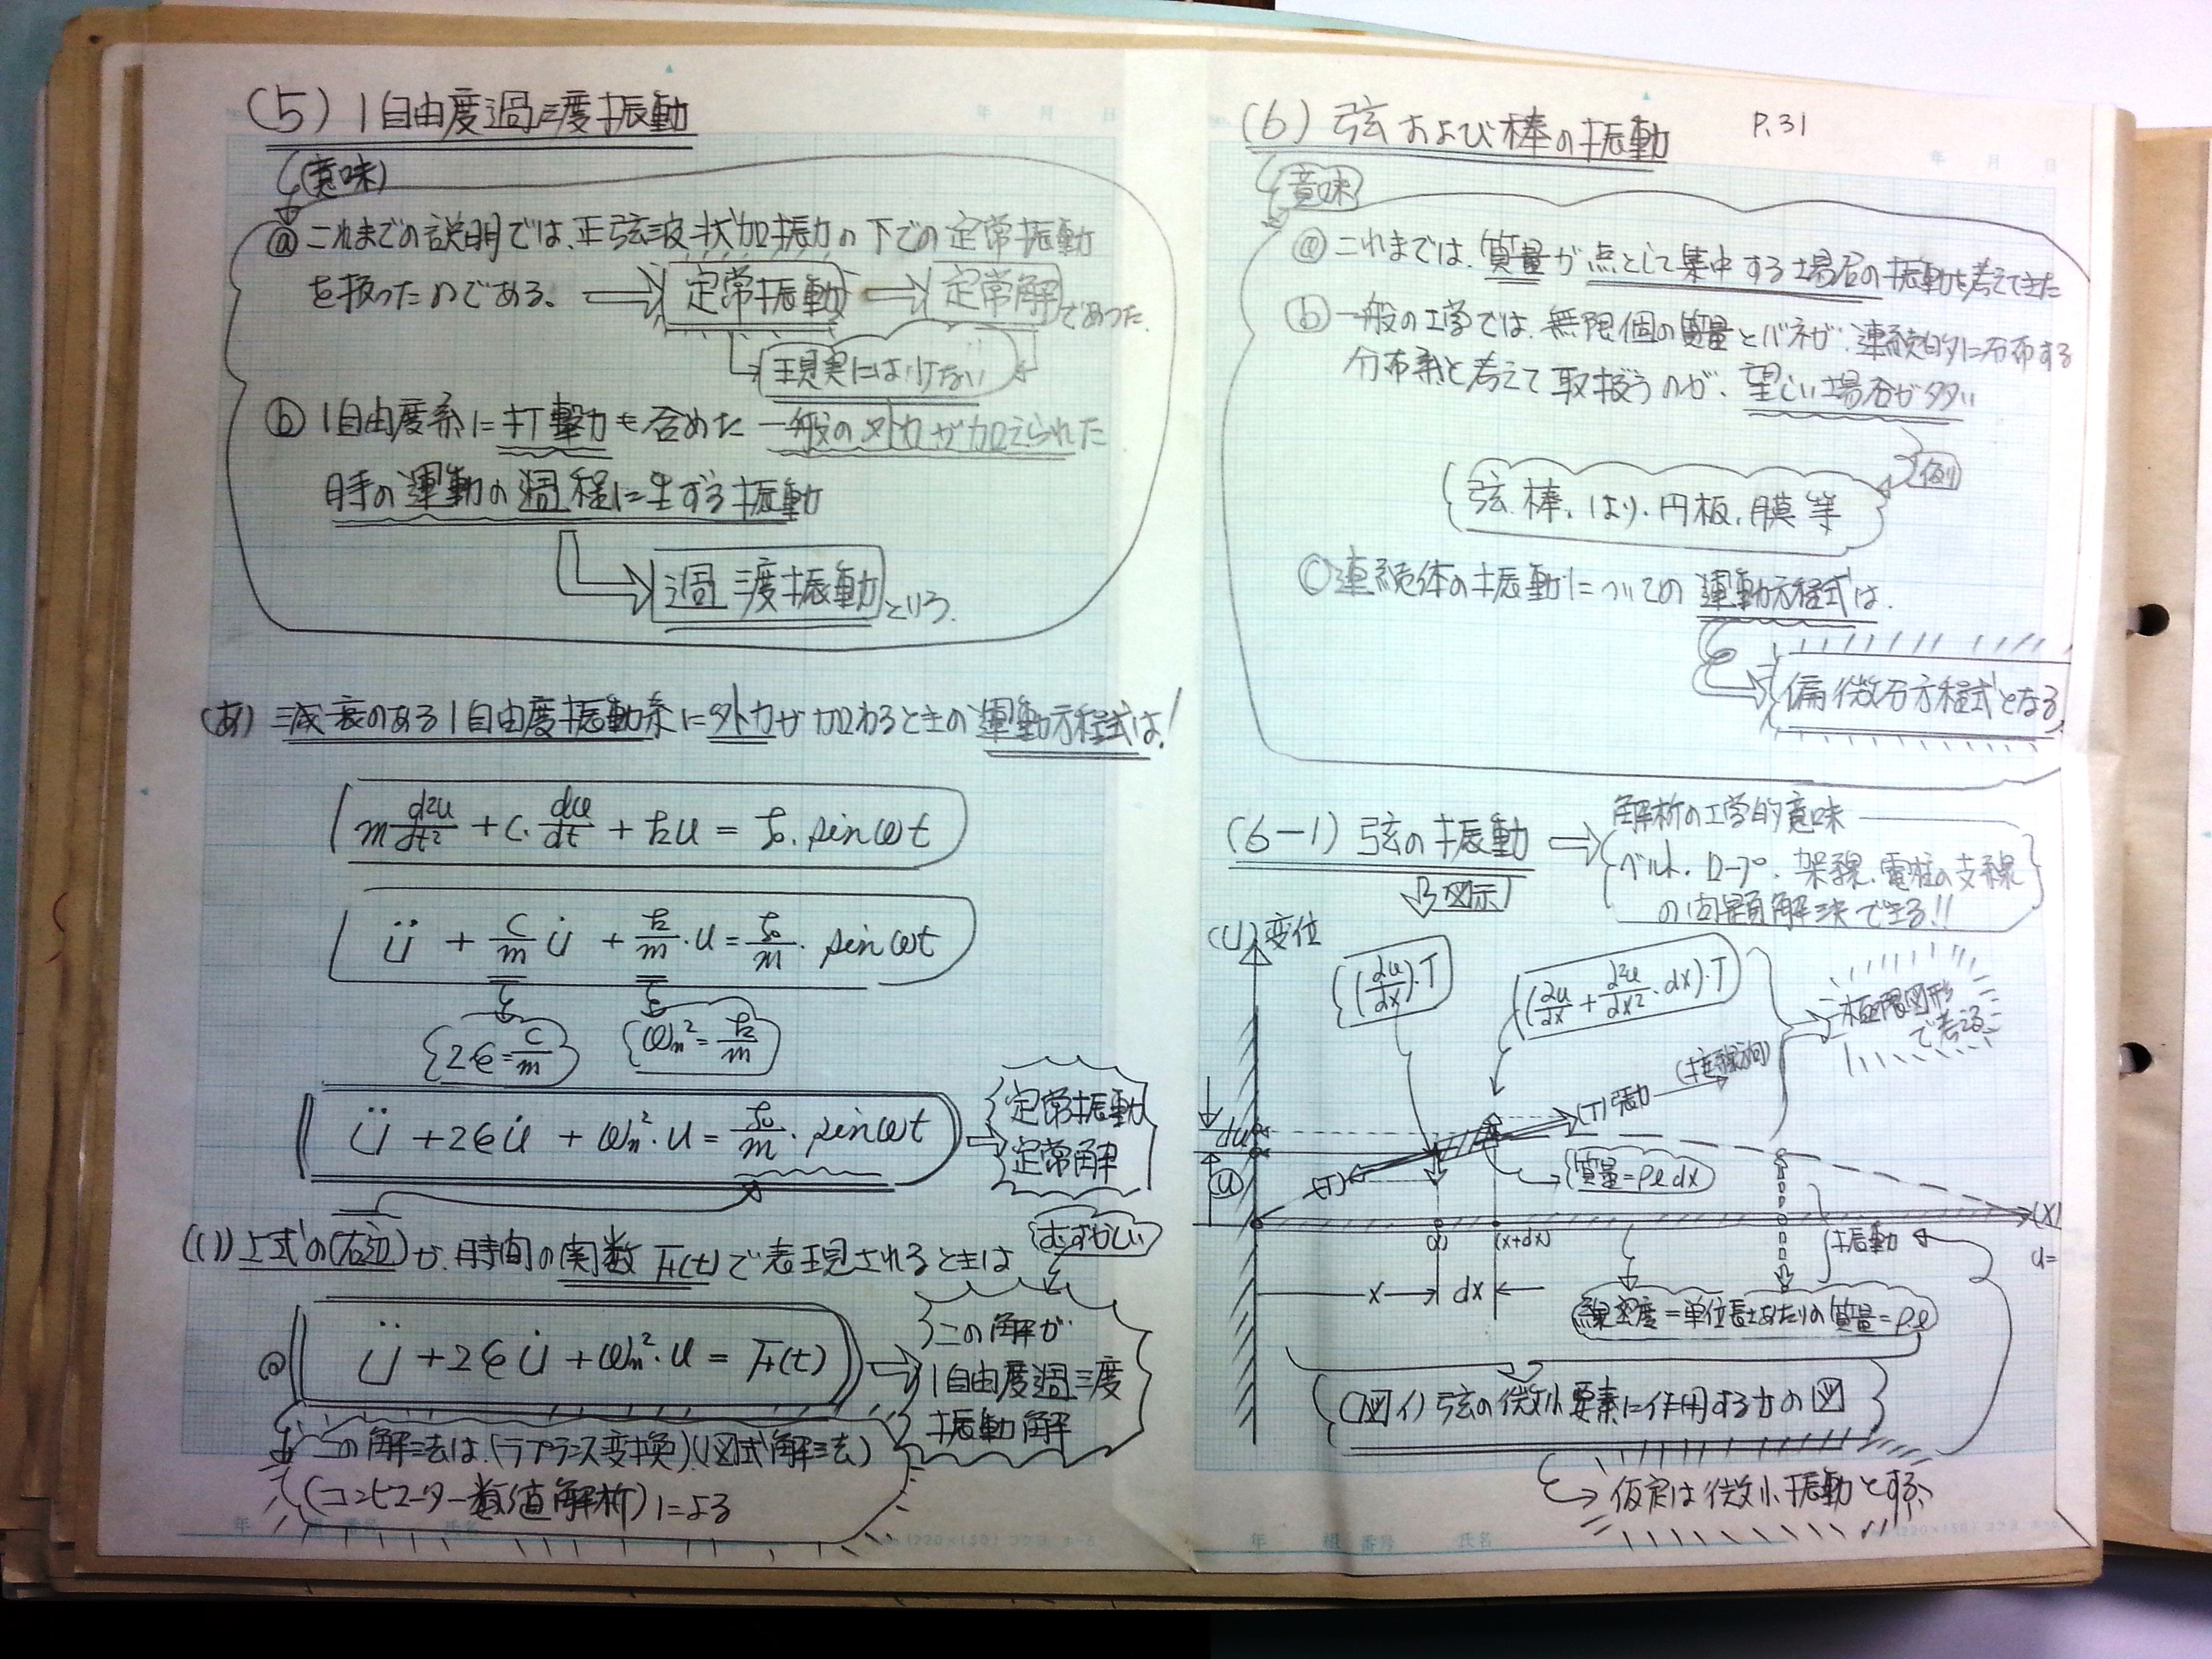 (5) 1自由度過渡振動
(意味)
ⓐ これまでの説明では、正弦波状加振力の下での定常振動
を扱ったのである。 ⇒ 定常振動 ⇒ 定常解 であった.
現実には少ない
ⓑ 1自由度系に打撃力も含めた一般の外力が加えられた
時の運動の過程に生ずる振動
過渡振動 という.
(あ) 減衰のある1自由度振動系に外力が加わるときの運動方程式は!
m d²u/dt² + c・du/dt + ku = f₀・sinωt
ü + c/m u̇ + k/m・u = f₀/m・sinωt
2ε = c/m
ωn² = k/m
ü + 2εu̇ + ωn²・u = f₀/m・sinωt
定常振動
定常解
(い) 上式の(右辺)が、時間の関数 F(t)で表現されるときは
むずかしい
ⓐ ü + 2εu̇ + ωn²・u = F(t)
この解が
1自由度過渡
振動解
この解法は、(ラプランス変換)、(図式解法)
(コンピューター数値解析)による
年 組 番号 氏名
(6) 弦および棒の振動 P.31
年 月 日
意味
ⓐ これまでは、質量が点として集中する場合の振動を考えてきた
ⓑ 一般の工学では、無限個の質量とバネが、連続的に分布する
分布系と考えて取扱うのが、望しい場合が多い
例
弦、棒、はり、円板、膜等
ⓒ 連続体の振動についての運動方程式は、
偏微分方程式となる
(6-1) 弦の振動
解析の工学的意味
ベルト・ロープ・架線・電柱の支線
の問題解決できる!!
図示
(U)変位
(du/dx)・T
(du/dx + d²u/dx²・dx)・T
極限図形
で考える
(T)張力
(接線方向)
du
(u)
(T)
質量=ρℓdx
(x)
(x+dx)
(X)
振動
u=
x
dx
線密度=単位長さあたりの質量=ρℓ
(図イ) 弦の微小要素に作用する力の図
仮定は微小振動とする
年 組 番号 氏名